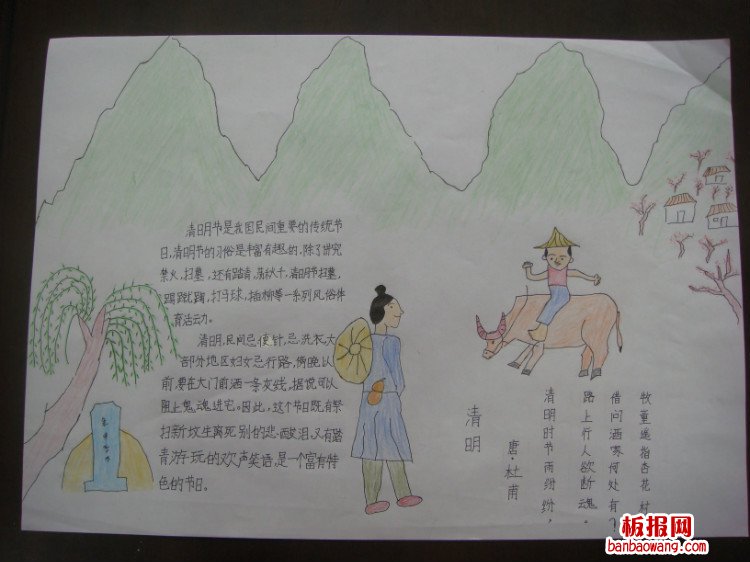 清明节是我国民间重要的传统节
日,清明节的习俗是丰富有趣的,除了讲究
禁火,扫墓,还有踏青,荡秋千,清明节扫墓,
踢蹴鞠,打马球,插柳等一系列风俗体
育活动。
清明,民间忌使针,忌洗衣,大
部分地区妇女忌行路,傍晚以
前,要在大门前洒一条灰线,据说可以
阻止鬼魂进宅。因此,这个节日既有祭
扫新坟生离死别的悲·酸泪,又有踏
青游玩的欢声笑语,是一个富有特
色的节日。
清明
唐·杜甫
清明时节雨纷纷,
路上行人欲断魂。
借问酒家何处有?
牧童遥指杏花村
板报网
banbaowang.com